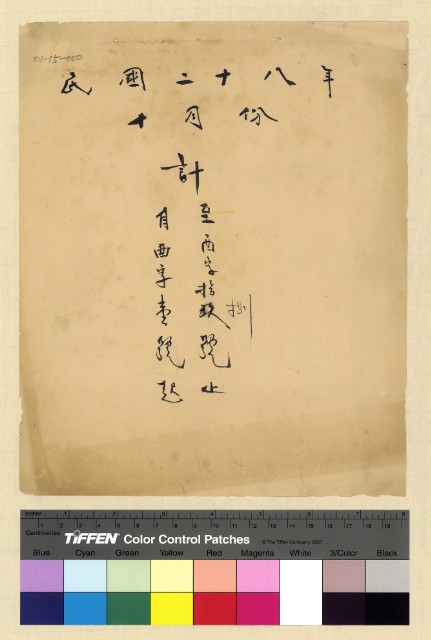 02-15-000
民國二十八年
十月份
計
自酉字壹號起
至酉字拾玖號止
捌
inches 1 2 3 4 5 6 7 8
Centimetres 1 2 3 4 5 6 7 8 9 10 11 12 13 14 15 16 17 18 19
TIFFEN® Color Control Patches © The Tiffen Company, 2007
Blue Cyan Green Yellow Red Magenta White 3/Color Black